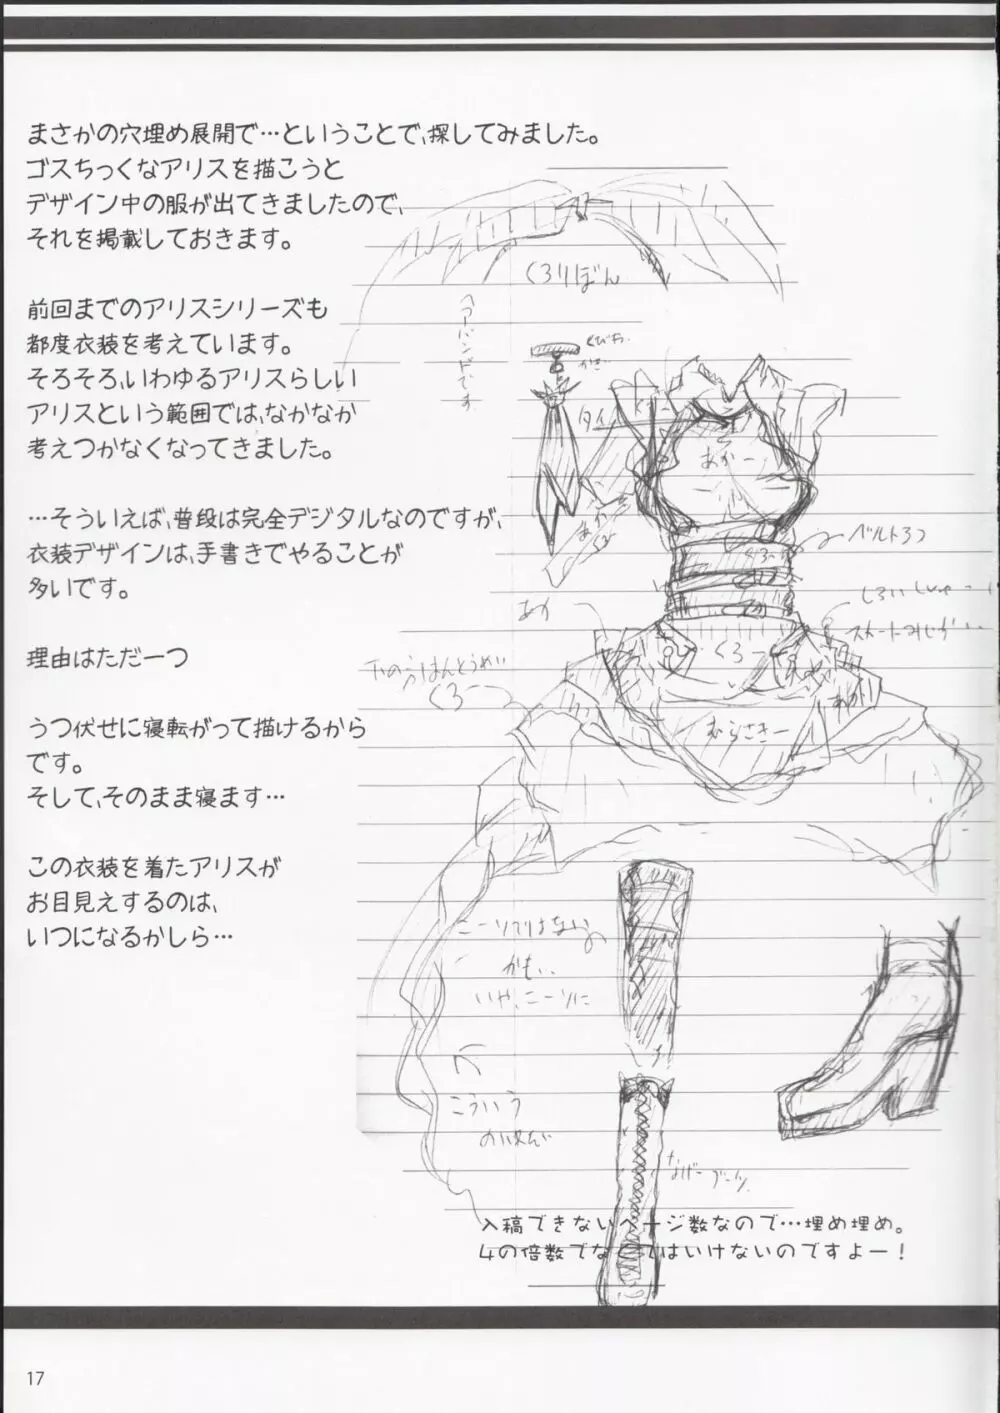 まさかの穴埋め展開で…ということで、探してみました。
ゴスちっくなアリスを描こうと
デザイン中の服が出てきましたので、
それを掲載しておきます。
前回までのアリスシリーズも
都度衣装を考えています。
そろそろ、いわゆるアリスらしい
アリスという範囲では、なかなか
考えつかなくなってきました。
…そういえば、普段は完全デジタルなのですが、
衣装デザインは、手書きでやることが
多いです。
理由はただ一つ
うつ伏せに寝転がって描けるから
です。
そして、そのまま寝ます…
この衣装を着たアリスが
お目見えするのは、
いつになるかしら…
くろりぼん
ヘアーバンドです
タイ
あかー
ベルト3つ
くろー
あか
くろー
むらさきー
ニーソではない
かも..
いや、ニーソに
こういう
なげーブーツ
入稿できないページ数なので…埋め埋め。
4の倍数でな てはいけないのですよー！
17